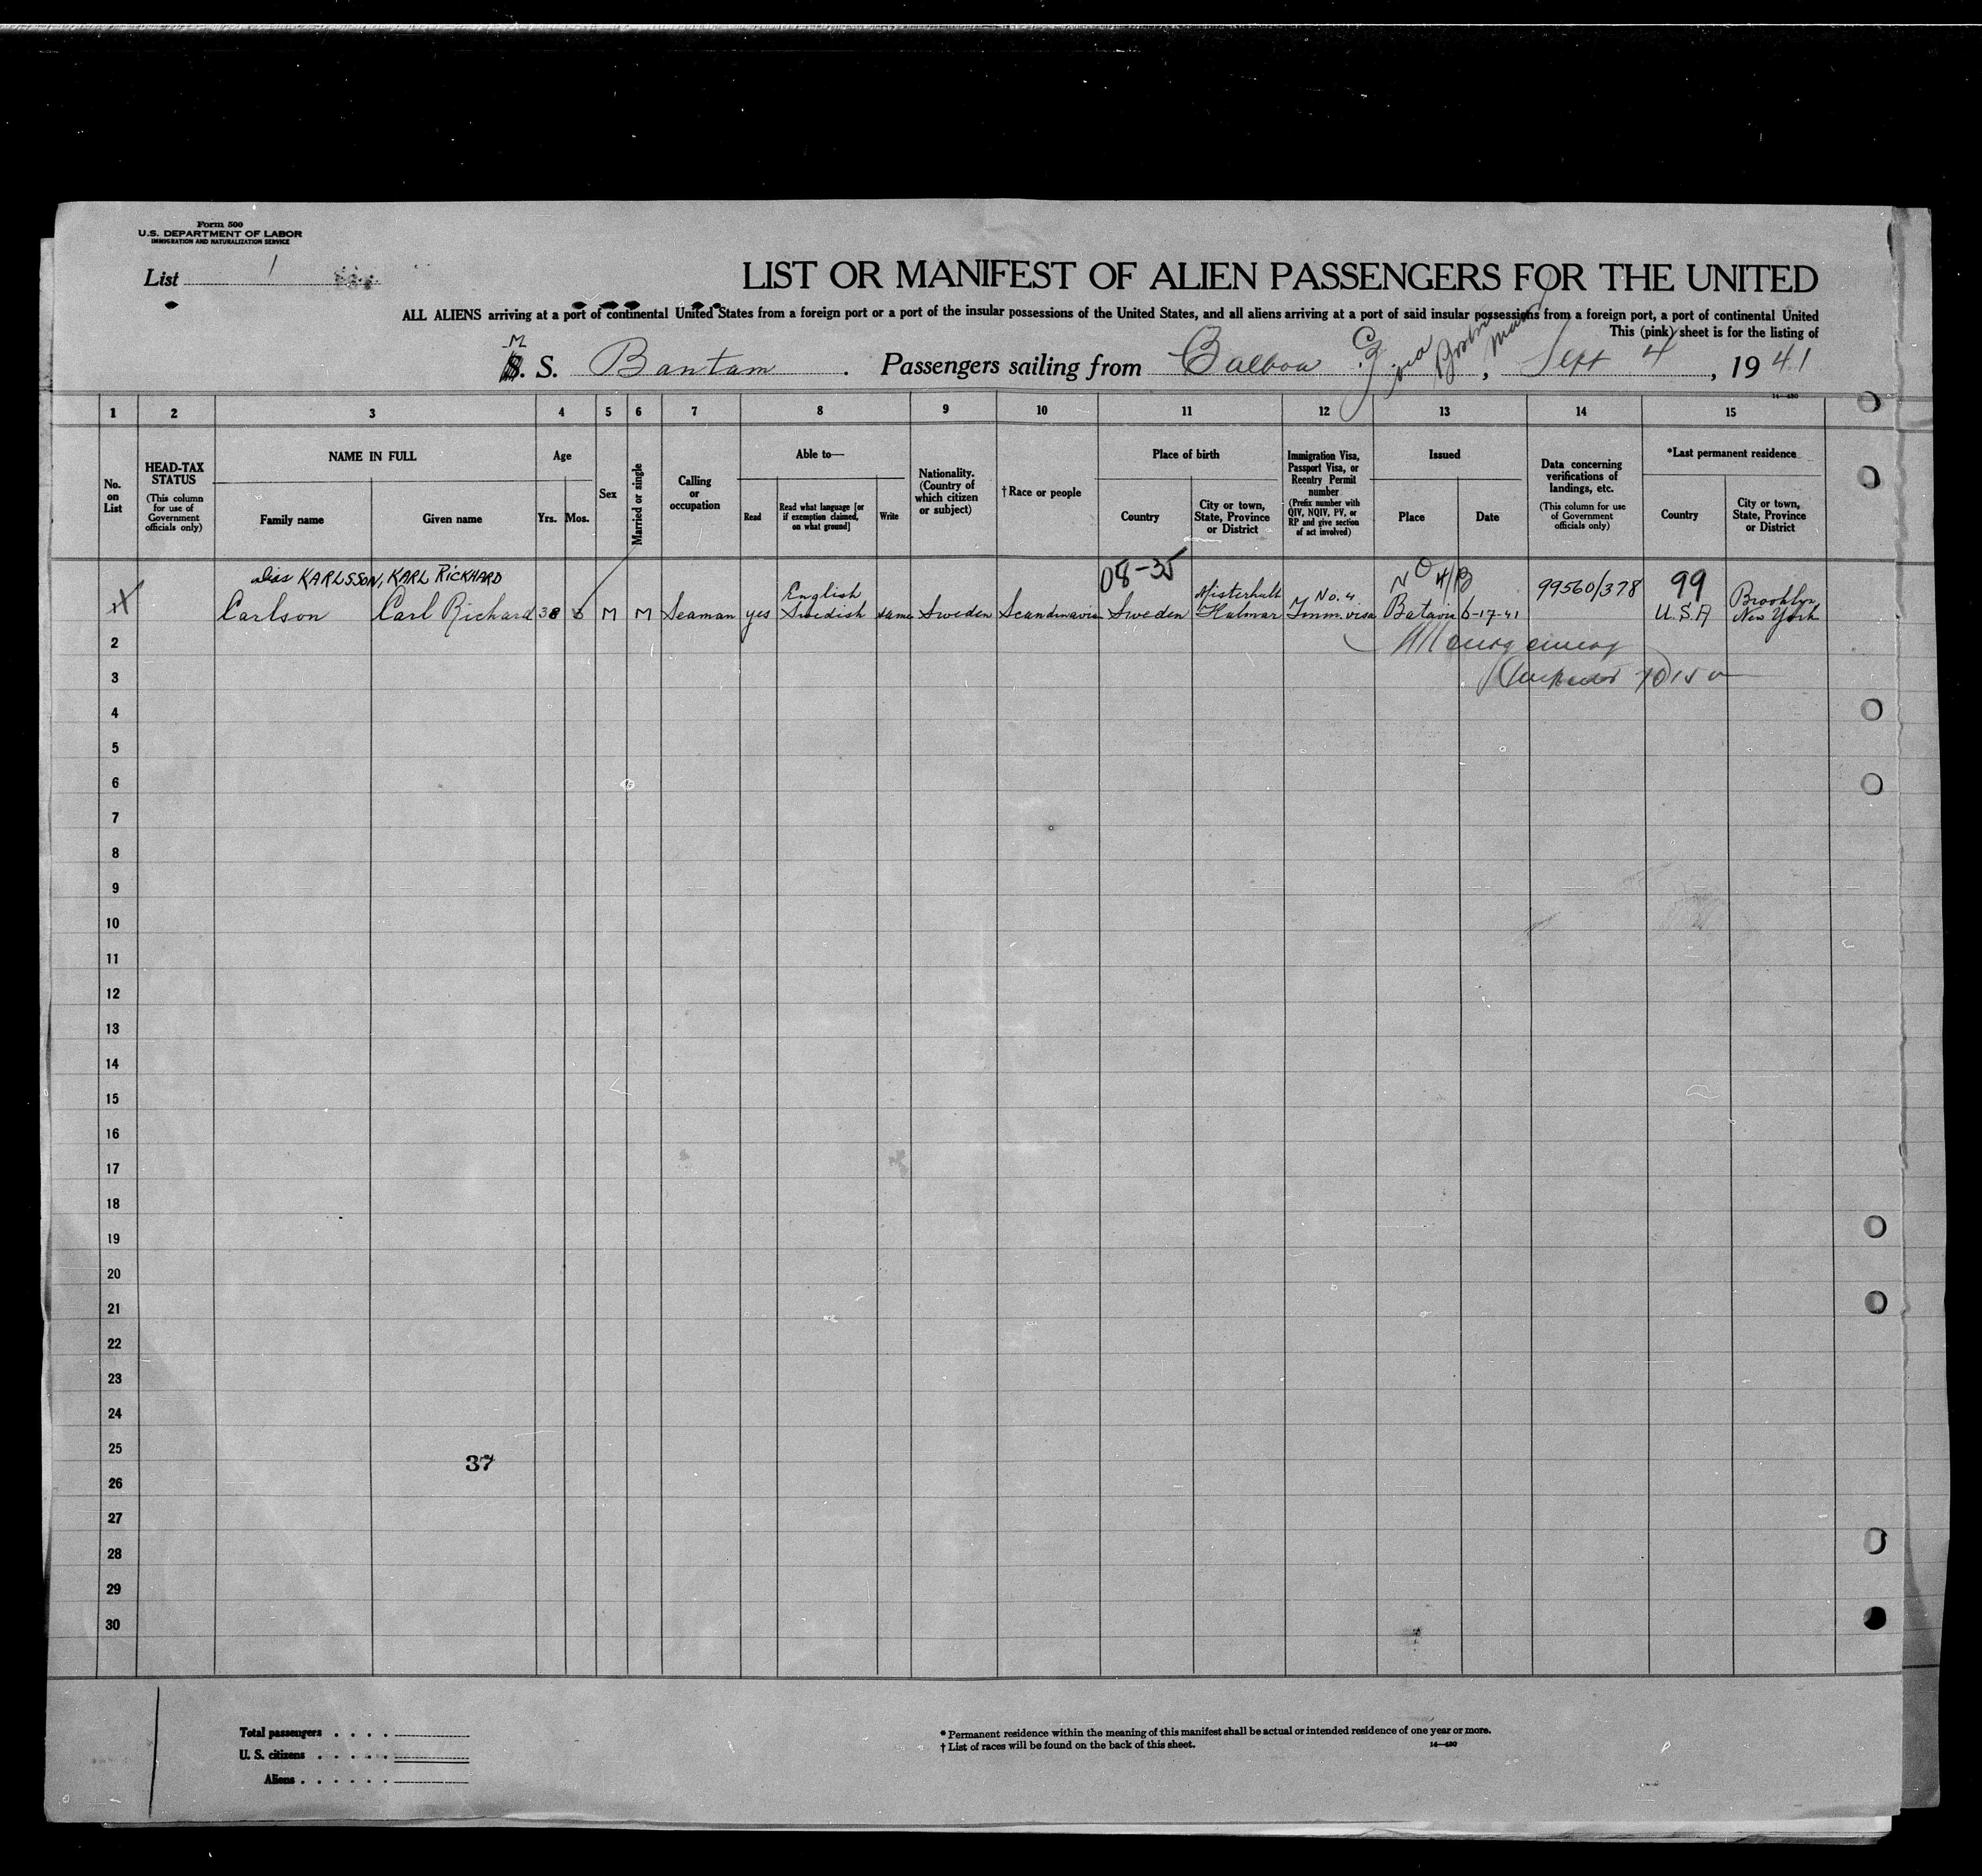 Form 500
U.S. DEPARTMENT OF LABOR
IMMIGRATION AND NATURALIZATION SERVICE
List 1
LIST OR MANIFEST OF ALIEN PASSENGERS FOR THE UNITED
ALL ALIENS arriving at a port of continental United States from a foreign port or a port of the insular possessions of the United States, and all aliens arriving at a port of said insular possessions from a foreign port, a port of continental United
This (pink) sheet is for the listing of
M
S. Bantam . Passengers sailing from Balboa C.Z. via Boston Mass , Sept 4 , 19 41
14—430
1 2 3 4 5 6 7 8 9 10 11 12 13 14 15
No. on List
HEAD-TAX STATUS
(This column for use of Government officials only)
NAME IN FULL
Family name
Given name
Age
Yrs.
Mos.
Sex
Married or single
Calling or occupation
Able to—
Read
Read what language [or if exemption claimed, on what ground]
Write
Nationality. (Country of which citizen or subject)
†Race or people
Place of birth
Country
City or town, State, Province or District
Immigration Visa, Passport Visa, or Reentry Permit number
(Prefix number with QIV, NQIV, PV, or RP and give section of act involved)
Issued
Place
Date
Data concerning verifications of landings, etc.
(This column for use of Government officials only)
*Last permanent residence
Country
City or town, State, Province or District
alias KARLSSON, KARL RICKHARD
08-35
NO 4/B
99560/378
99
English
Misterhult
No. 4
Brooklyn
Carlson Carl Richard 38 M M Seaman yes Swedish same Sweden Scandinavia Sweden Halmar Imm. visa Batavia 6-17-41 U.S.A New York
2
3
4
5
6
7
8
9
10
11
12
13
14
15
16
17
18
19
20
21
22
23
24
25
37
26
27
28
29
30
Total passengers . . . .
U. S. citizens . . . . .
Aliens . . . . . .
* Permanent residence within the meaning of this manifest shall be actual or intended residence of one year or more.
† List of races will be found on the back of this sheet.
14—430